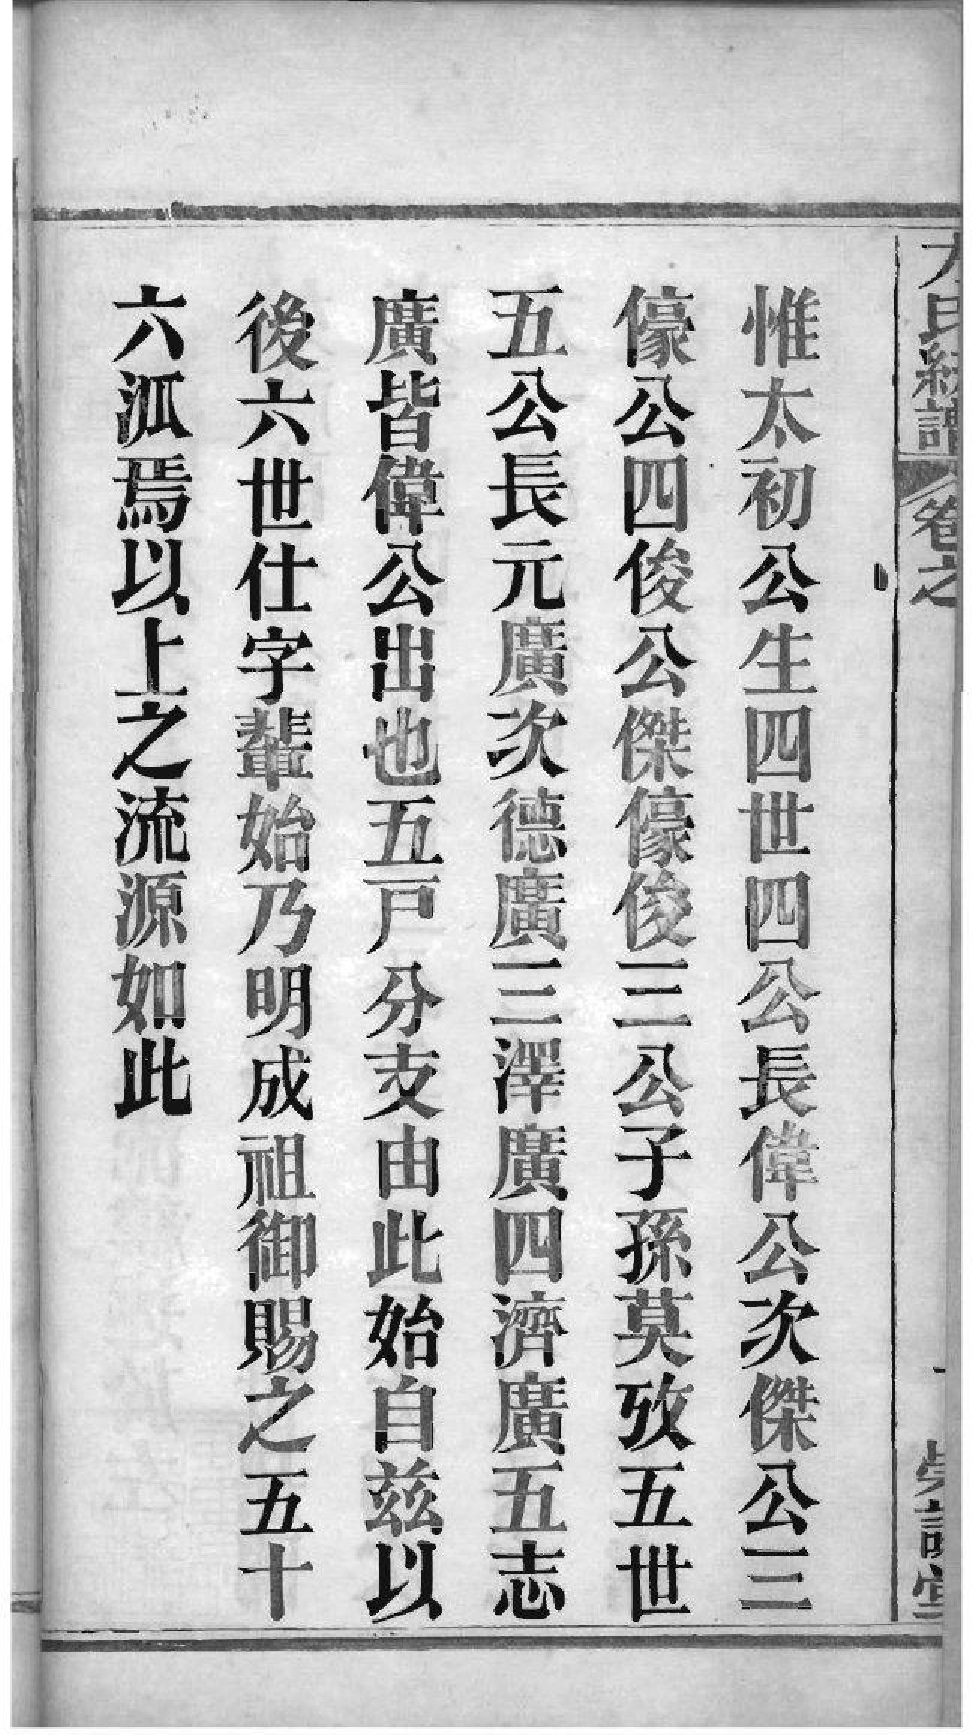 惟太初公生四世四公長偉公次傑公三
儫公四俊公傑儫俊三公子孫莫攷五世
五公長元廣次德廣三澤廣四濟廣五志
廣皆偉公出也五戸分支由此始自茲以
後六世仕字輩始乃明成祖御賜之五十
六泒焉以上之流源如此
氏統譜
卷之